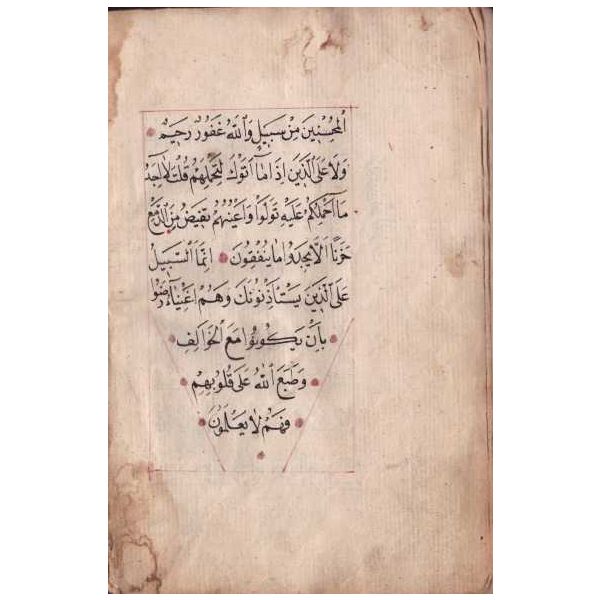 الْمُحْسِنِينَ مِنْ سَبِيلٍ وَاللَّهُ غَفُورٌ رَحِيمٌ
وَلَا عَلَى الَّذِينَ إِذَا مَا أَتَوْكَ لِتَحْمِلَهُمْ قُلْتَ لَا أَجِدُ
مَا أَحْمِلُكُمْ عَلَيْهِ تَوَلَّوْا وَأَعْيُنُهُمْ تَفِيضُ مِنَ الدَّمْعِ
حَزَنًا أَلَّا يَجِدُوا مَا يُنْفِقُونَ إِنَّمَا السَّبِيلُ
عَلَى الَّذِينَ يَسْتَأْذِنُونَكَ وَهُمْ أَغْنِيَاءُ رَضُوا
بِأَنْ يَكُونُوا مَعَ الْخَوَالِفِ
وَطَبَعَ اللَّهُ عَلَى قُلُوبِهِمْ
فَهُمْ لَا يَعْلَمُونَ